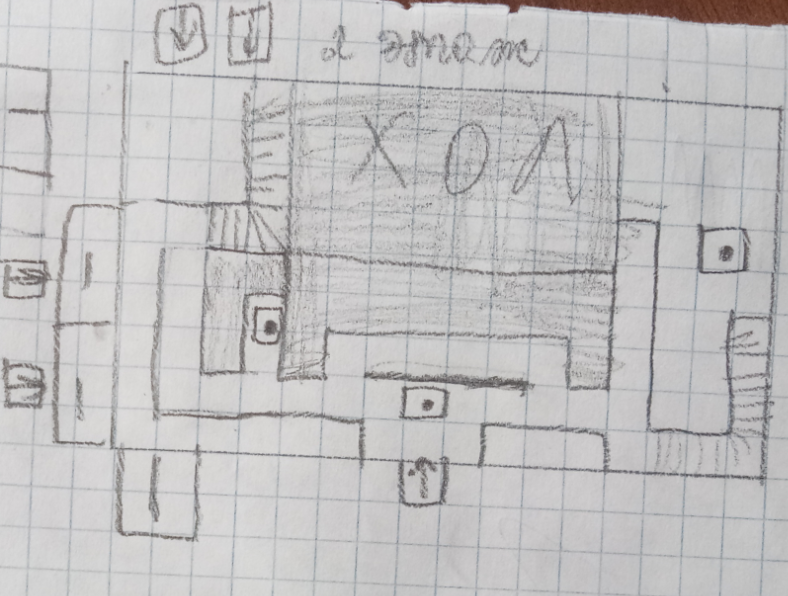 2 этаж
ХОЛ